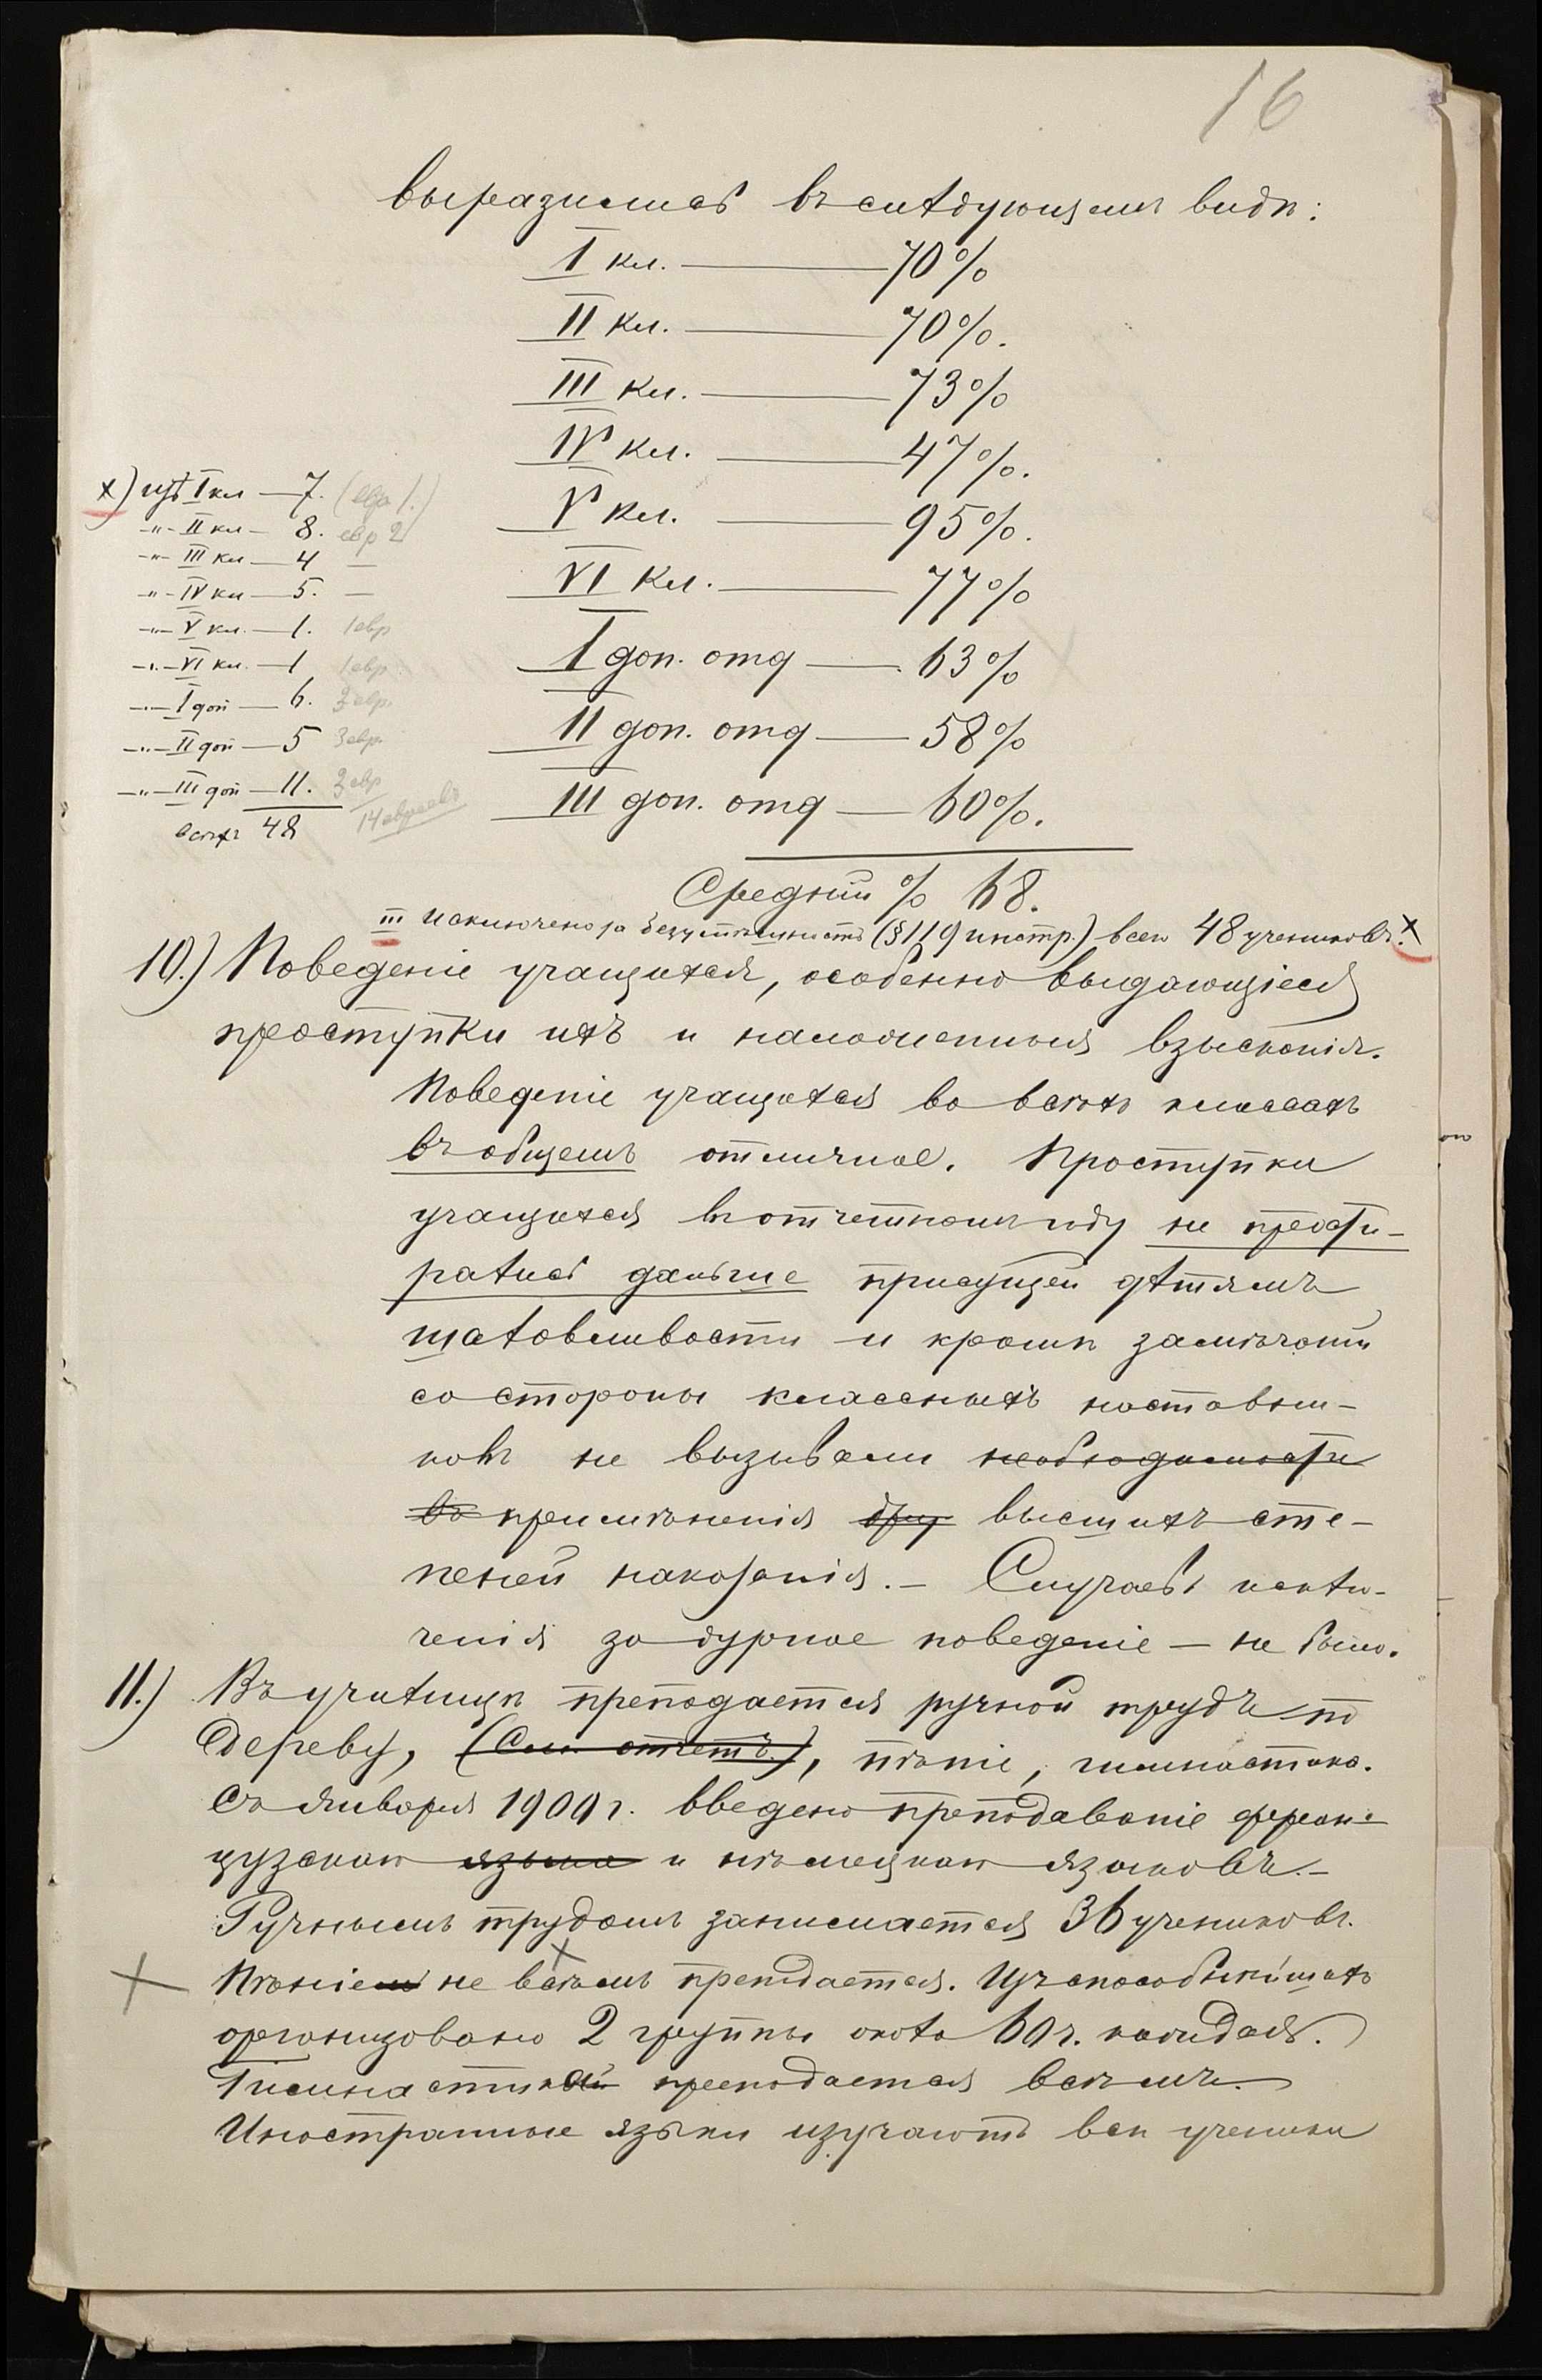 16
выразились въ слѣдующемъ видѣ:
I кл. — 70%
II кл. — 70%.
III кл. — 73%
IV кл. — 47%.
V кл. — 95%.
VI кл. — 77%
I доп. отд — 63%
II доп. отд — 58%
III доп. отд — 60%.
Средній % 68.
х) изъ I кл — 7. (евр 1.)
-„- II кл — 8. евр 2
-„- III кл — 4 —
-„- IV кл — 5. —
-„- V кл. — 1. 1 евр
-„- VI кл. — 1 1 евр
-„- I доп — 6. 3 евр.
-„- II доп — 5 3 евр.
-„- III доп — 11. 3 евр
всѣхъ 48 14 евреевъ
III исключено за безуспѣшность (§119 инстр.) всего 48 учениковъ. х
10.) Поведеніе учащихся, особенно выдающіеся
проступки ихъ и наложенныя взысканія.
Поведеніе учащихся во всѣхъ классахъ
въ общемъ отличное. Проступки
учащихся въ отчетномъ году не прости-
рались дальше присущей дѣтямъ
шаловливости и кромѣ замѣчаній
со стороны классныхъ наставни-
ковъ не вызывали необходимости
въ примѣненія др высшихъ сте-
пеней наказанія. — Случаевъ исклю-
ченія за дурное поведеніе — не было.
11.) Въ училищѣ преподается ручной трудъ по
дереву, (См. отчетъ), пѣніе, гимнастика.
Съ января 1909 г. введено преподаваніе фран-
цузскаго языка и нѣмецкаго языковъ. —
Ручнымъ трудомъ занимается 36 учениковъ.
х Пѣніе не всѣмъ х преподается. Изъ способнѣйшихъ
организовано 2 группы около 60 ч. каждая.
Гимнастика преподается всѣмъ.
Иностранные языки изучаютъ всѣ ученики